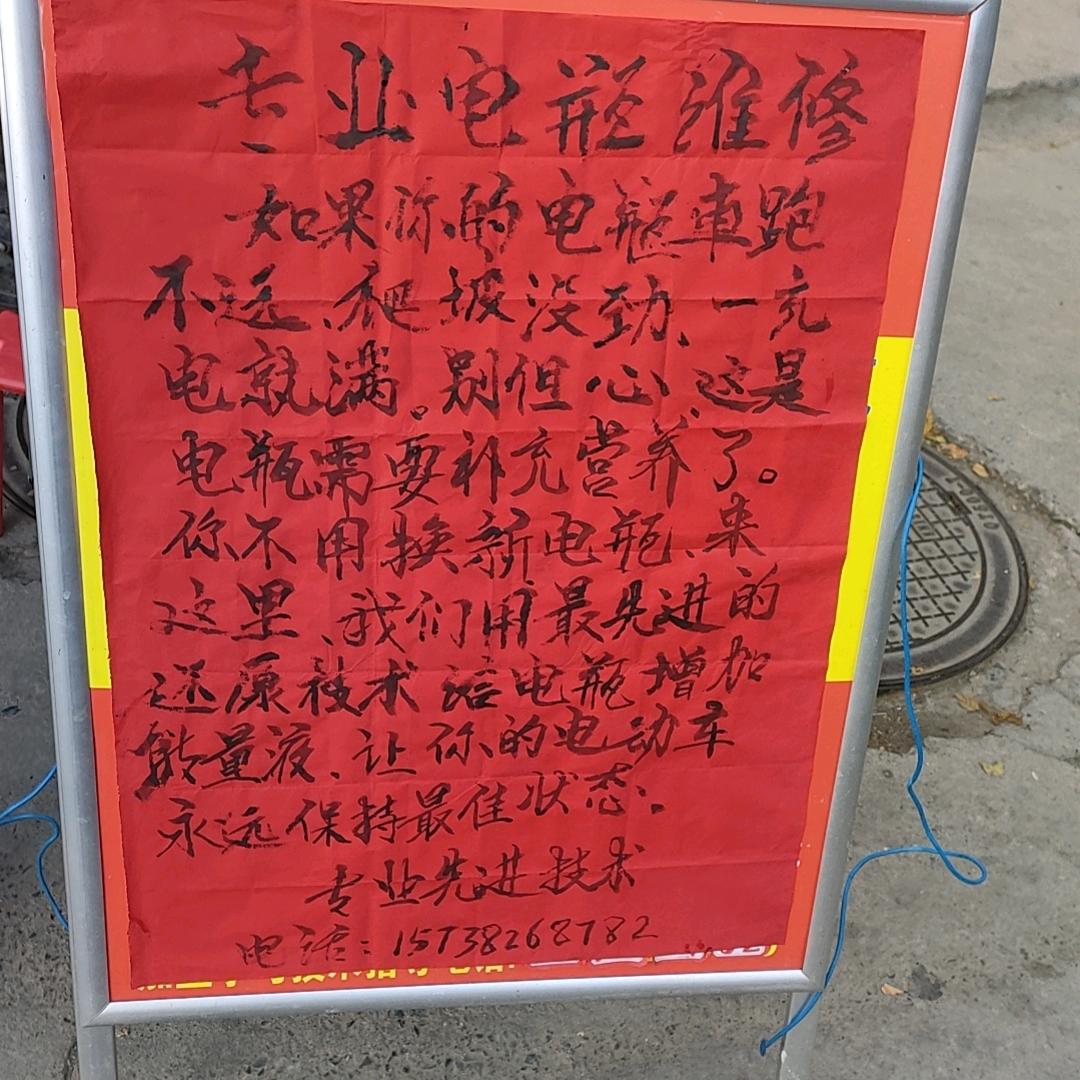 专业电瓶维修
如果你的电瓶車跑
不远、爬坡没劲、一充
电就满。别但心、这是
电瓶需要补充营养了。
你不用换新电瓶、来
这里、我们用最先进的
还原技术给电瓶增加
能量液、让你的电动车
永远保持最佳状态。
专业先进技术
电话：15738268782